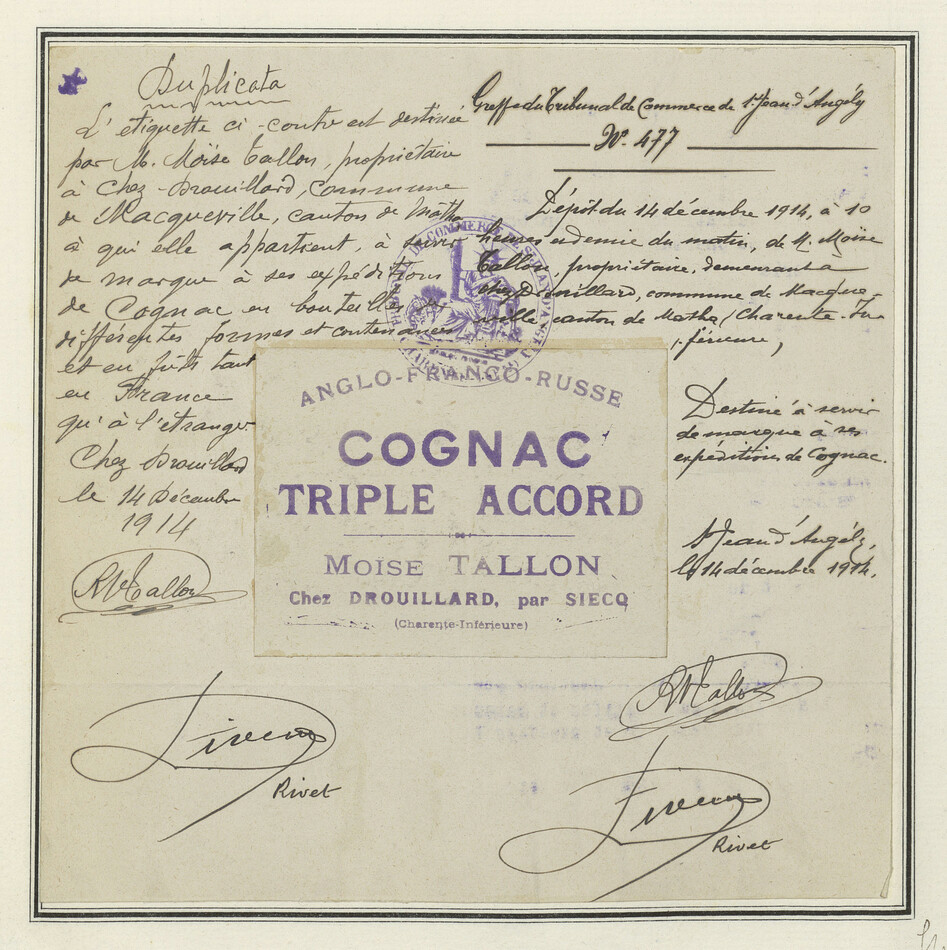 Duplicata
L'étiquette ci-contre est destinée
par M. Moïse Tallon, propriétaire
à Chez-Drouillard, commune
de Macqueville, canton de Matha
à qui elle appartient, à servir
de marque à ses expéditions
de Cognac en bouteilles de
différentes formes et contenances
et en fûts tant
en France
qu'à l'étranger
Chez Drouillard
le 14 Décembre
1914
RM Tallon
Rivet
Greffe du Tribunal de Commerce de St Jean d'Angély
No. 477
Dépôt du 14 décembre 1914, à 10
heures et demie du matin, de M. Moïse
Tallon, propriétaire, demeurant à
chez Drouillard, commune de Macque-
ville, canton de Matha (Charente-In-
férieure,
Destiné à servir
de marque à ses
expéditions de Cognac.
St Jean d'Angély,
le 14 décembre 1914.
RM Tallon
Rivet
ANGLO-FRANCO-RUSSE
COGNAC
TRIPLE ACCORD
MOÏSE TALLON
Chez DROUILLARD, par SIECQ
(Charente-Inférieure)